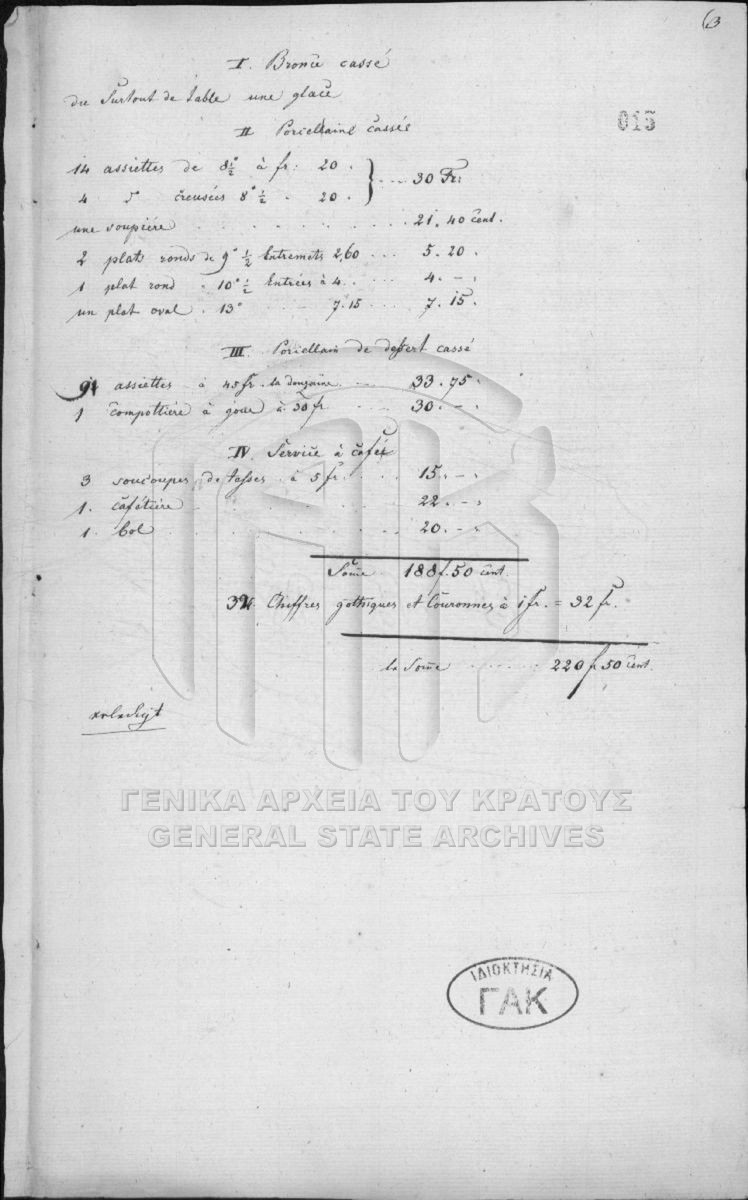 63
I. Bronce cassé
du Surtout de table une glace
015
II Porcellaine cassée
14 assiettes de 8½" à fr: 20 .
4 d° creusées 8"½ - 20 . } ... 30 Fr:
une soupière . . . . . . . 21. 40 Cent.
2 plats ronds de 9" ½ Entremets 2,60 ... 5. 20.
1 plat rond " 10" ½ Entrées à 4 . . . . 4. - "
un plat oval . 13" - 7.15 ... 7. 15.
III. Porcellain de dessert cassé
9 assiettes à 45 fr. la douzaine . . . . 33. 75 "
1 Compottière à 30 fr. . . . 30. - "
IV. Service à Café
3 soucoupes de tasses à 5 fr. . . . 15. - "
1. Cafétière . . . . . . . 22. - "
1. bol . . . . . . . 20. - "
Some 188 f. 50 Cent.
32 Chiffres gothiques et Couronnes à 1 fr. = 32 fr.
la Some . . . . . . 220 f 50 Cent.
ΓΕΝΙΚΑ ΑΡΧΕΙΑ ΤΟΥ ΚΡΑΤΟΥΣ
GENERAL STATE ARCHIVES
ΙΔΙΟΚΤΗΣΙΑ
ΓΑΚ